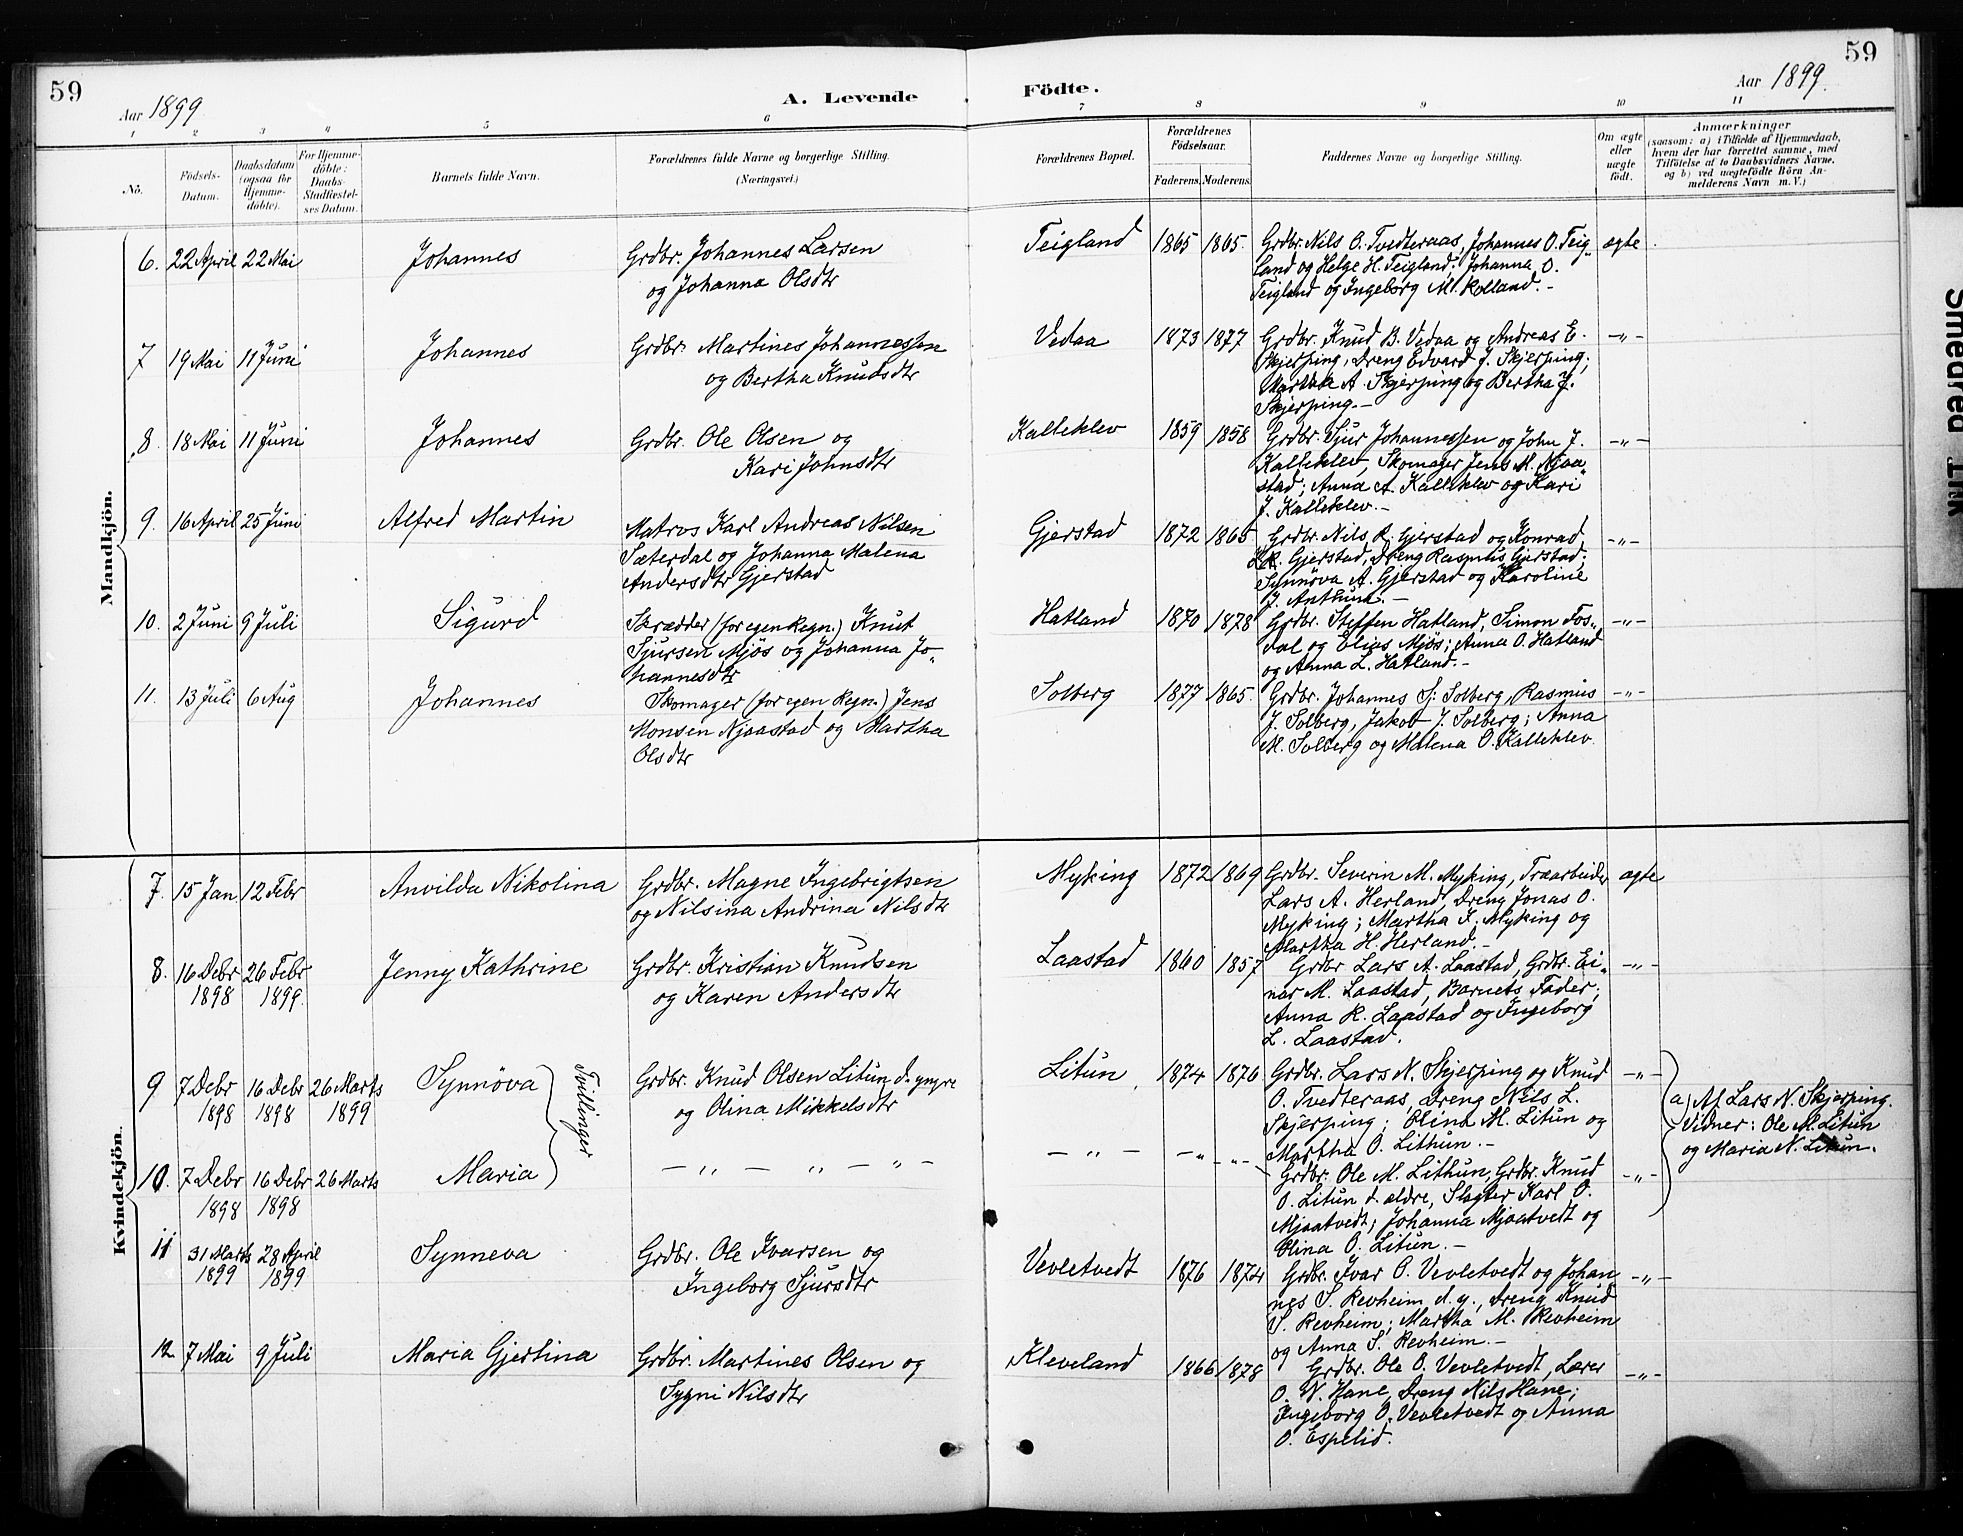 59
Aar 1899
A. Levende Födte.
Aar 1899.
59
1 2 3 4 5 6 7 8 9 10 11
No.
Födsels-Datum.
Daabsdatum (ogsaa for Hjemme-döbte).
For Hjemme-döbte: Daabs-Stadfæstel-ses Datum.
Barnets fulde Navn.
Forældrenes fulde Navne og borgerlige Stilling.
(Næringsvei.)
Forældrenes Bopæl.
Forældrenes Födselsaar.
Faderens. Moderens.
Faddernes Navne og borgerlige Stilling.
Om ægte eller uægte födt.
Anmærkninger
(saasom: a) i Tilfælde af Hjemmedaab, hvem der har forrettet samme, med Tilföielse af to Daabsvidners Navne, og b) ved uægtefödte Börn An-melderens Navn m. V.)
Mandkjön.
6. 22 April 22 Mai Johannes
Grdbr. Johannes Larsen
og Johanna Olsdtr
Teigland 1865 1865.
Grdbr. Nils O. Tvedteraas, Johannes O. Teig„
land og Helge H. Teigland; Johanna O.
Teigland og Ingeborg M. Rolland.-
ægte
7 19 Mai 11 Juni Johannes
Grdbr. Martines Johannessen
og Bertha Knudsdtr
Vedaa 1873 1877
Grdbr. Knud B. Vedaa og Andreas E.
Skjerping, Dreng Edvard J. Skjerping;
Martha A. Skjerping og Bertha J.
Skjerping.-
-„-
8. 18 Mai 11 Juni Johannes
Grdbr. Ole Olsen og
Kari Johnsdtr
Kalleklev 1859 1858
Grdbr. Sjur Johannessen og John J.
Kalleklev, Skomager Jens M. Njaa„
stad; Anna A. Kalleklev og Kari
J. Kalleklev.-
-„-
9. 16 April 25 Juni Alfred Martin
Matros Karl Andreas Nilsen
Sæterdal og Johanna Malena
Andersdtr Gjerstad
Gjerstad 1872 1865
Grdbr. Nils R. Gjerstad og Konrad
R. Gjerstad, Dreng Rasmus Gjerstad;
Synnöva A. Gjerstad og Karoline
J. Anthun.-
-„-
10. 2 Juni 9 Juli Sigurd
Skrædder (for egen Regn.) Knut
Sjursen Mjös og Johanna Jo„
hannesdtr
Hatland 1870 1878
Grdbr. Steffen Hatland, Simon Fos„
dal og Elias Mjös; Anna O. Hatland
og Anna L. Hatland.-
-„-
11. 13 Juli 6 Aug Johannes
Skomager (for egen Regn.) Jens
Monsen Njaastad og Martha
Olsdtr
Solberg 1877 1865.
Grdbr. Johannes S. Solberg, Rasmus
J. Solberg, Jakob J. Solberg; Anna
M. Solberg og Malena O. Kalleklev
-„-
Kvindekjön.
7. 15 Jan 12 Febr Anvilda Nikolina
Grdbr. Magne Ingebrigtsen
og Nilsina Andrina Nilsdtr
Myking 1872 1869
Grdbr. Severin M. Myking, Træarbeider
Lars A. Herland, Dreng Jonas O.
Myking; Martha I. Myking og
Martha H. Herland.-
ægte
8. 16 Debr 26 Febr Jenny Kathrine
1898 1899.
Grdbr. Kristian Knudsen
og Karen Andersdtr
Laastad 1860 1857
Grdbr Lars A. Laastad, Grdbr. Ei„
nar M. Laastad, Barnets Fader;
Anna K. Laastad og Ingeborg
L. Laastad.
-„-
9 7 Debr 16 Debr 26 Marts Synnöva
1898 1898 1899
Tvillinger
Grdbr. Knud Olsen Litun d. yngre
og Olina Mikkelsdtr
Litun 1874 1876
Grdbr. Lars N. Skjerping og Knud
O. Tvedteraas, Dreng Nils L.
Skjerping; Olina M. Litun og
Martha O. Lithun.-
-„-
a) Af Lars N. Skjerping.
Vidner: Ole M. Litun
og Maria N. Litun.
10. 7 Debr 16 Debr 26 Marts Maria
1898 1898
- „ - „ - „ -
- „ - - „ -„-
Grdbr. Ole M. Lithun, Grdbr. Knud
O. Litun d. ældre, Slagter Karl O.
Mjaatvedt; Johanna Mjaatvedt og
Olina O. Litun.-
-„-
11 31 Marts 28 April Synneva
1899 1899
Grdbr. Ole Ivarsen og
Ingeborg Sjursdtr
Vevletvedt 1876 1874
Grdbr. Ivar O. Vevletvedt og Johan„
nes S. Revheim d. y., Dreng Knud
S. Revheim; Martha M. Revheim
og Anna S. Revheim.-
-„-
12 7 Mai 9 Juli Maria Gjertina
Grdbr. Martines Olsen og
Sygni Nilsdtr
Kleveland 1866 1878
Grdbr. Ole O. Vevletvedt, Lærer
O. N. Hane, Dreng Nils Hane;
Ingeborg O. Vevletvedt og Anna
O. Espelid.
-„-